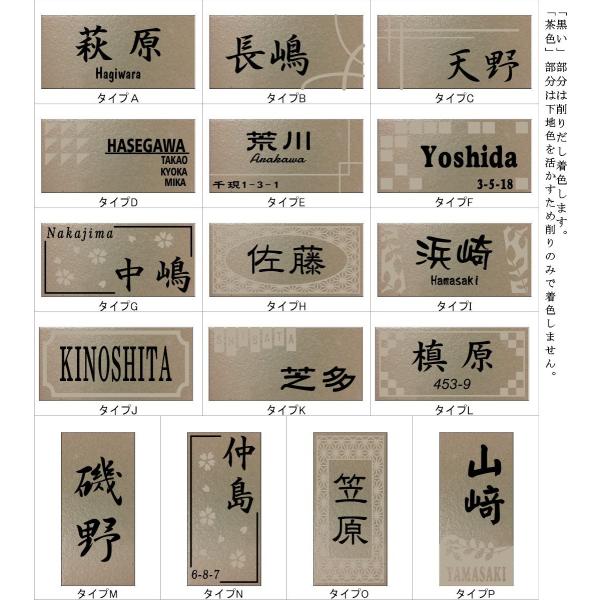 「黒い」部分は削りだし着色します。
「茶色」部分は下地色を活かすため削りのみで着色しません。
萩原
Hagiwara
タイプA
長嶋
タイプB
天野
タイプC
HASEGAWA
TAKAO
KYOKA
MIKA
タイプD
荒川
Arakawa
千現1-3-1
タイプE
Yoshida
3-5-18
タイプF
Nakajima
中嶋
タイプG
佐藤
タイプH
浜崎
Hamasaki
タイプI
KINOSHITA
タイプJ
SHIBATA
芝多
タイプK
槙原
453-9
タイプL
磯野
タイプM
仲島
6-8-7
タイプN
笠原
タイプO
山﨑
YAMASAKI
タイプP